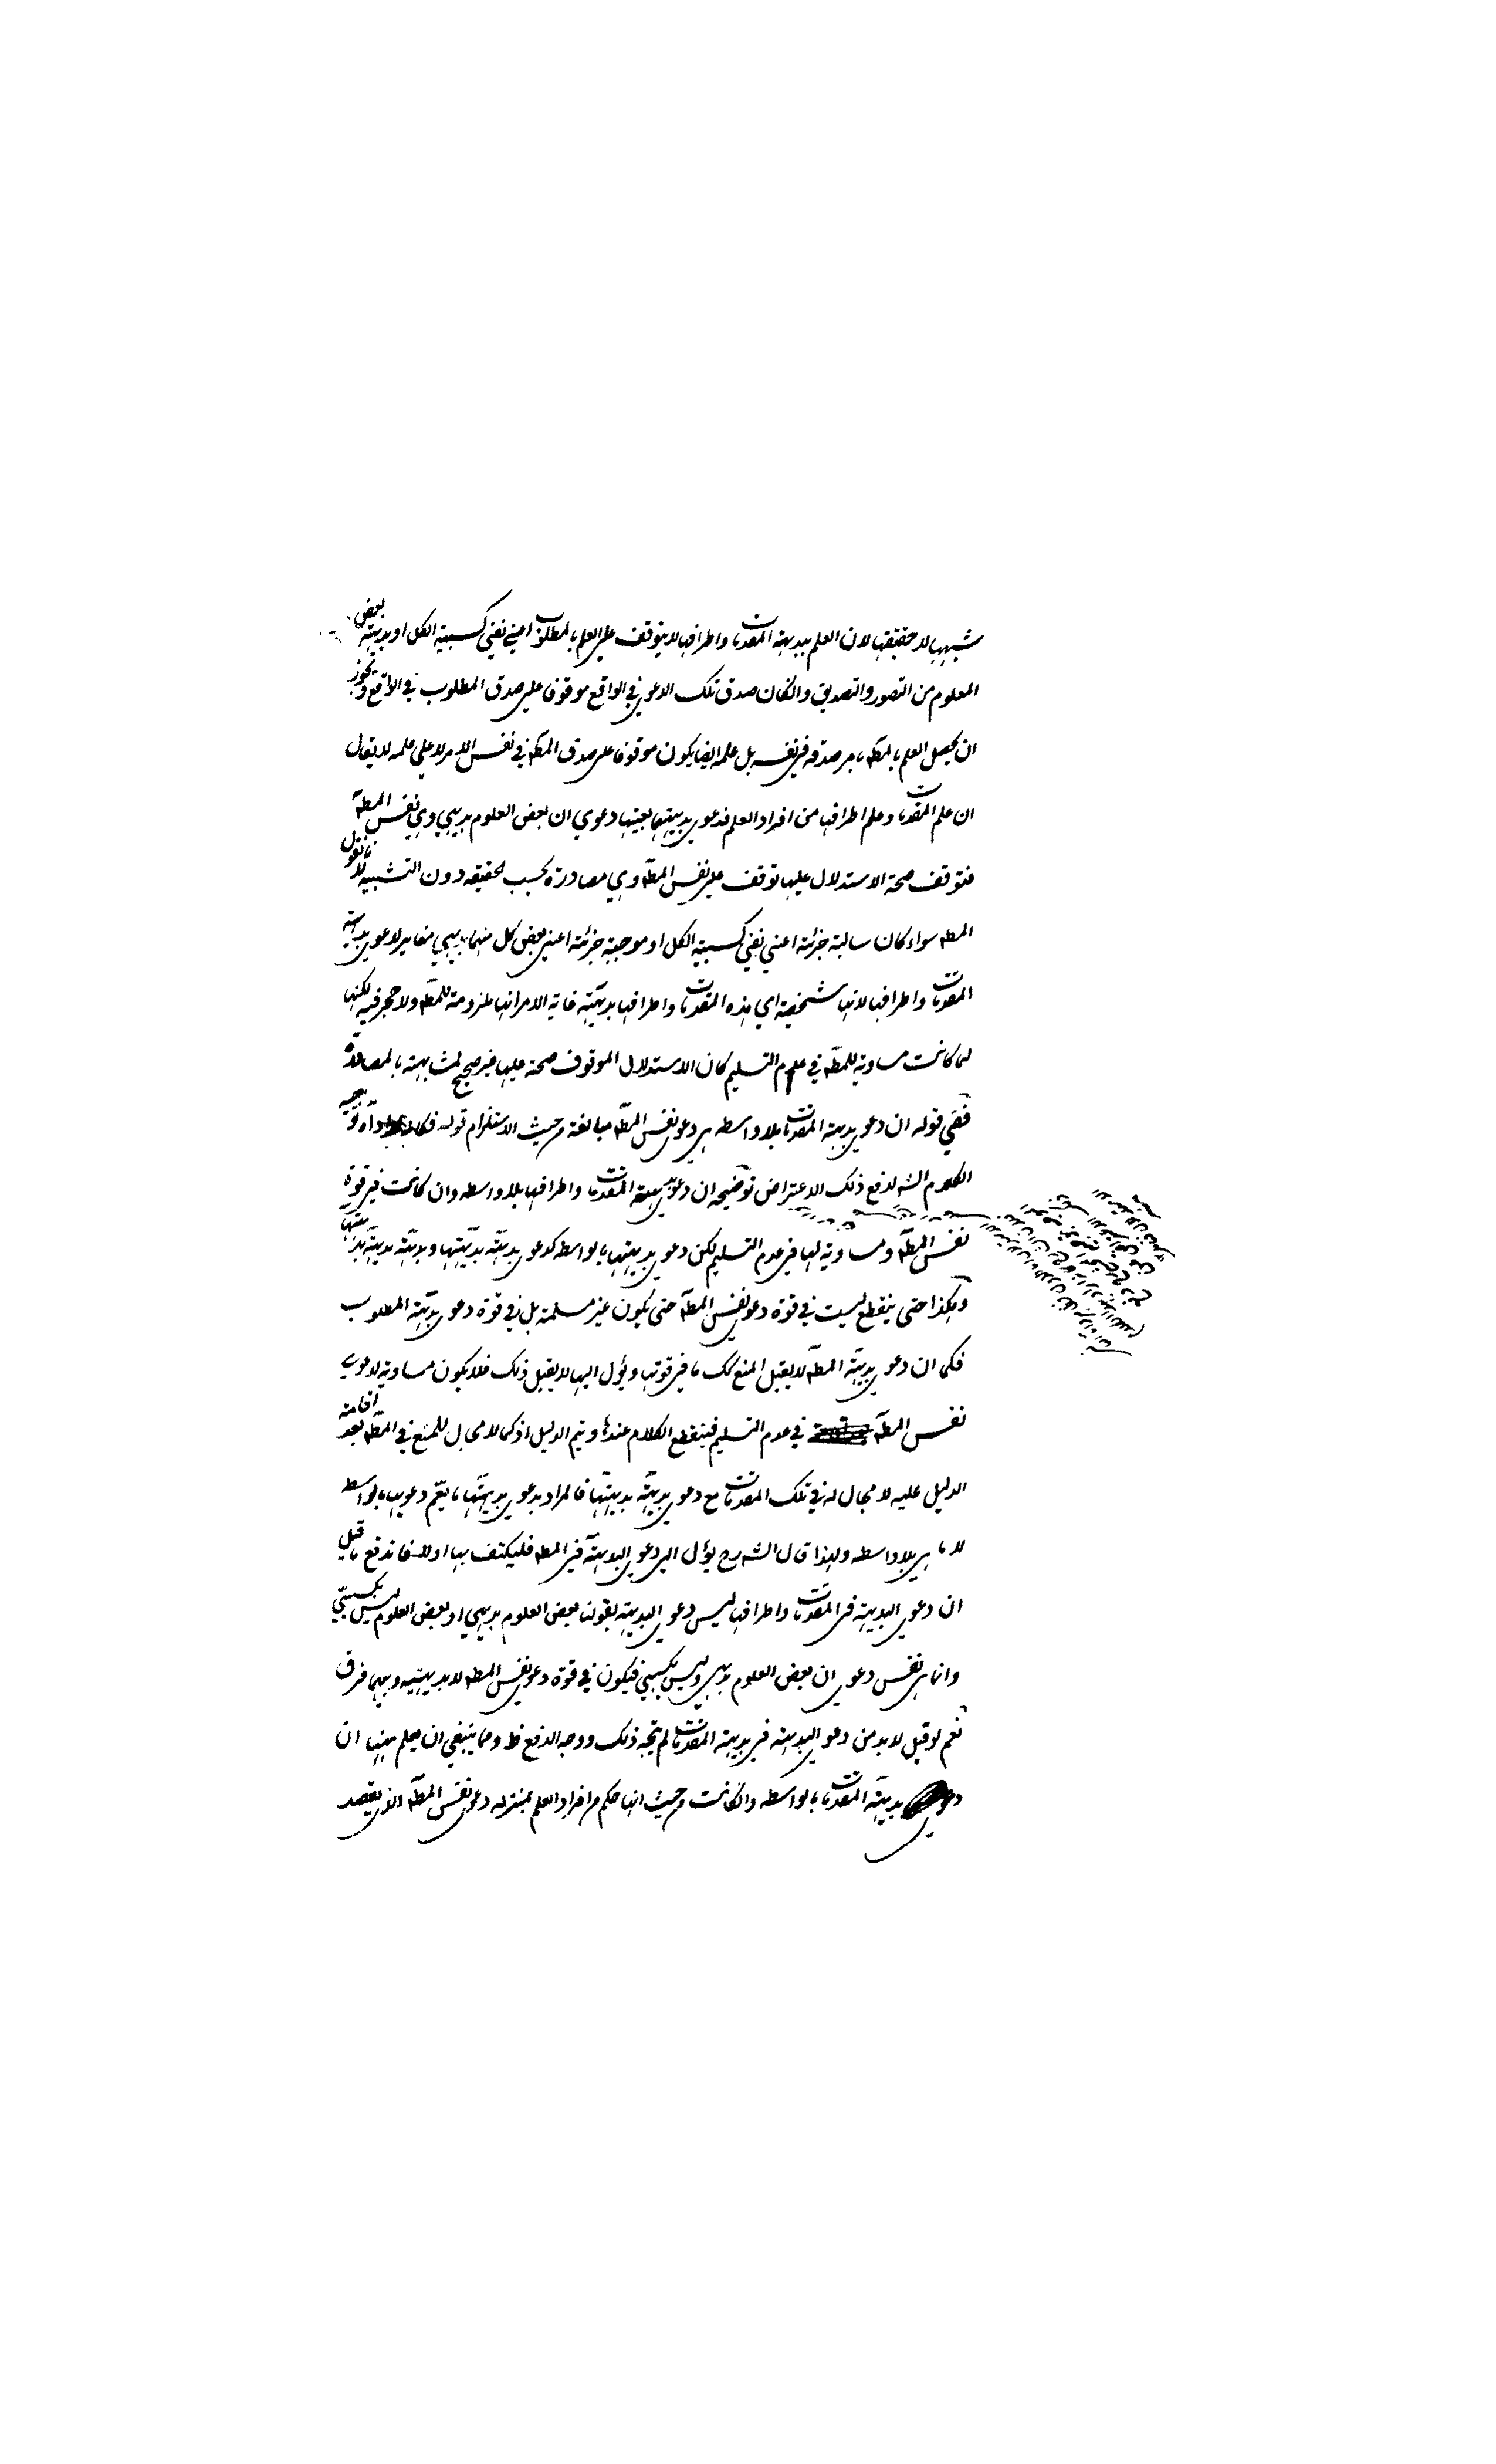 شبهها لا حقيقتها لان العلم ببديهة المقدمات واطرافها لا يتوقف على العلم بالمطلوب اعني نفي كسبية الكل او بديهية بعض
المعلوم من التصور والتصديق وان كان صدق تلك الدعوى في الواقع موقوفا على صدق المطلوب في الواقع ويجوز
ان يحصل العلم بالمط بامر صدقه في نفسه بل علمه ايضا يكون موقوفا على صدق المط في نفس الامر لا على علمه لا يقال
ان علم المقدمات وعلم اطرافها من افراد العلم فدعوى بديهيتهما بعينها دعوى ان بعض العلوم بديهي وهي نفس المط
فتوقف صحة الاستدلال عليها توقف على نفس المط وهي مصادرة بحسب الحقيقه دون التشبيه لانا نقول
المط سواء كان سالبة جزئية اعني نفي كسبية الكل او موجبة جزئية اعني بعض كل منهما بديهي مغاير لدعوى بداهة
المقدمات واطرافها لانها شخصية اي هذه المقدمات واطرافها بديهية غاية الامر انها ملزومة للمط ولا حجر فيه لكنها
لما كانت مساوية للمط في عدم التسليم كان الاستدلال الموقوف صحته عليها غير صحيح لمشابهته بالمصادرة
ففي قوله ان دعوى بديهة المقدمات بلا واسطه هي دعوى نفس المط مبالغة من حيث الاستلزام قوله فكما اه توجيه
الكلام الش لدفع ذلك الاعتراض توضيحه ان دعوى بديهة المقدمات واطرافها بلا واسطه وان كانت في قوة
نفس المط ومساوية لها في عدم التسليم لكن دعوى بديهيتها بالواسطه كدعوى بديهية بديهيتها وبديهية بديهية بديهيتها
وهكذا حتى ينقطع ليست في قوة دعوى نفس المط حتى يكون غير مسلمة بل في قوة دعوى بديهية المطلوب
فكما ان دعوى بديهية المط لا يقبل المنع كك ما في قوتها ويؤل اليها لا يقبل ذلك فلا يكون مساوية لدعوى
نفس المط في عدم التسليم فينقطع الكلام عندها ويتم الدليل اذ كما لا مجال للمنع في المط بعد اقامة
الدليل عليه لا مجال له في تلك المقدمات مع دعوى بديهية بديهيتها فالمراد بدعوى بديهيتها ما يعم دعويها بالواسطه
لا ما هي بلا واسطه ولهذا قال الش رح يؤل الى دعوى البديهية في المط فليكتف بها اولا فاندفع ما قيل
ان دعوى البديهية في المقدمات واطرافها ليس دعوى البديهية لقولنا بعض العلوم بديهي او بعض العلوم ليس بكسبي
وانما هي نفس دعوى ان بعض العلوم بديهي وليس بكسبي فيكون في قوة دعوى نفس المط لا بديهيتيه وبينهما فرق
نعم لو قيل لا بد من دعوى البديهية في بديهية المقدمات لم يتجه ذلك ووجه الدفع ظ ومما ينبغي ان يعلم ههنا ان
دعوى بديهية المقدمات بالواسطه وان كانت من حيث انها حكم من افراد العلم بمنزله دعوى نفس المط الذي يقصد